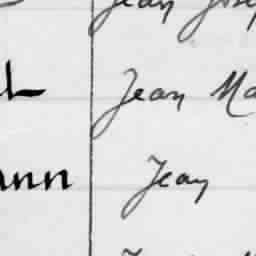 Jean
Jean Ma
ann Jean